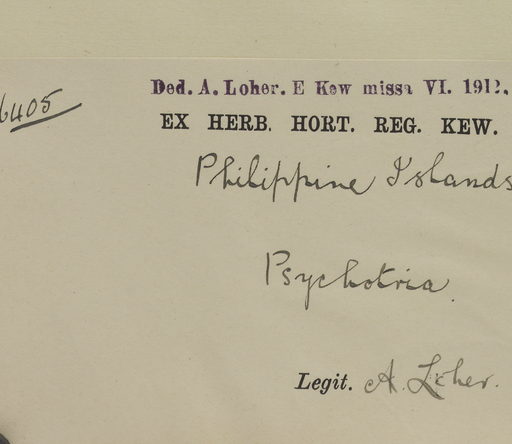 Ded. A. Loher. E Kew missa VI. 1912.
6405
EX HERB. HORT. REG. KEW.
Philippine Islands
Psychotria.
Legit. A. Loher.